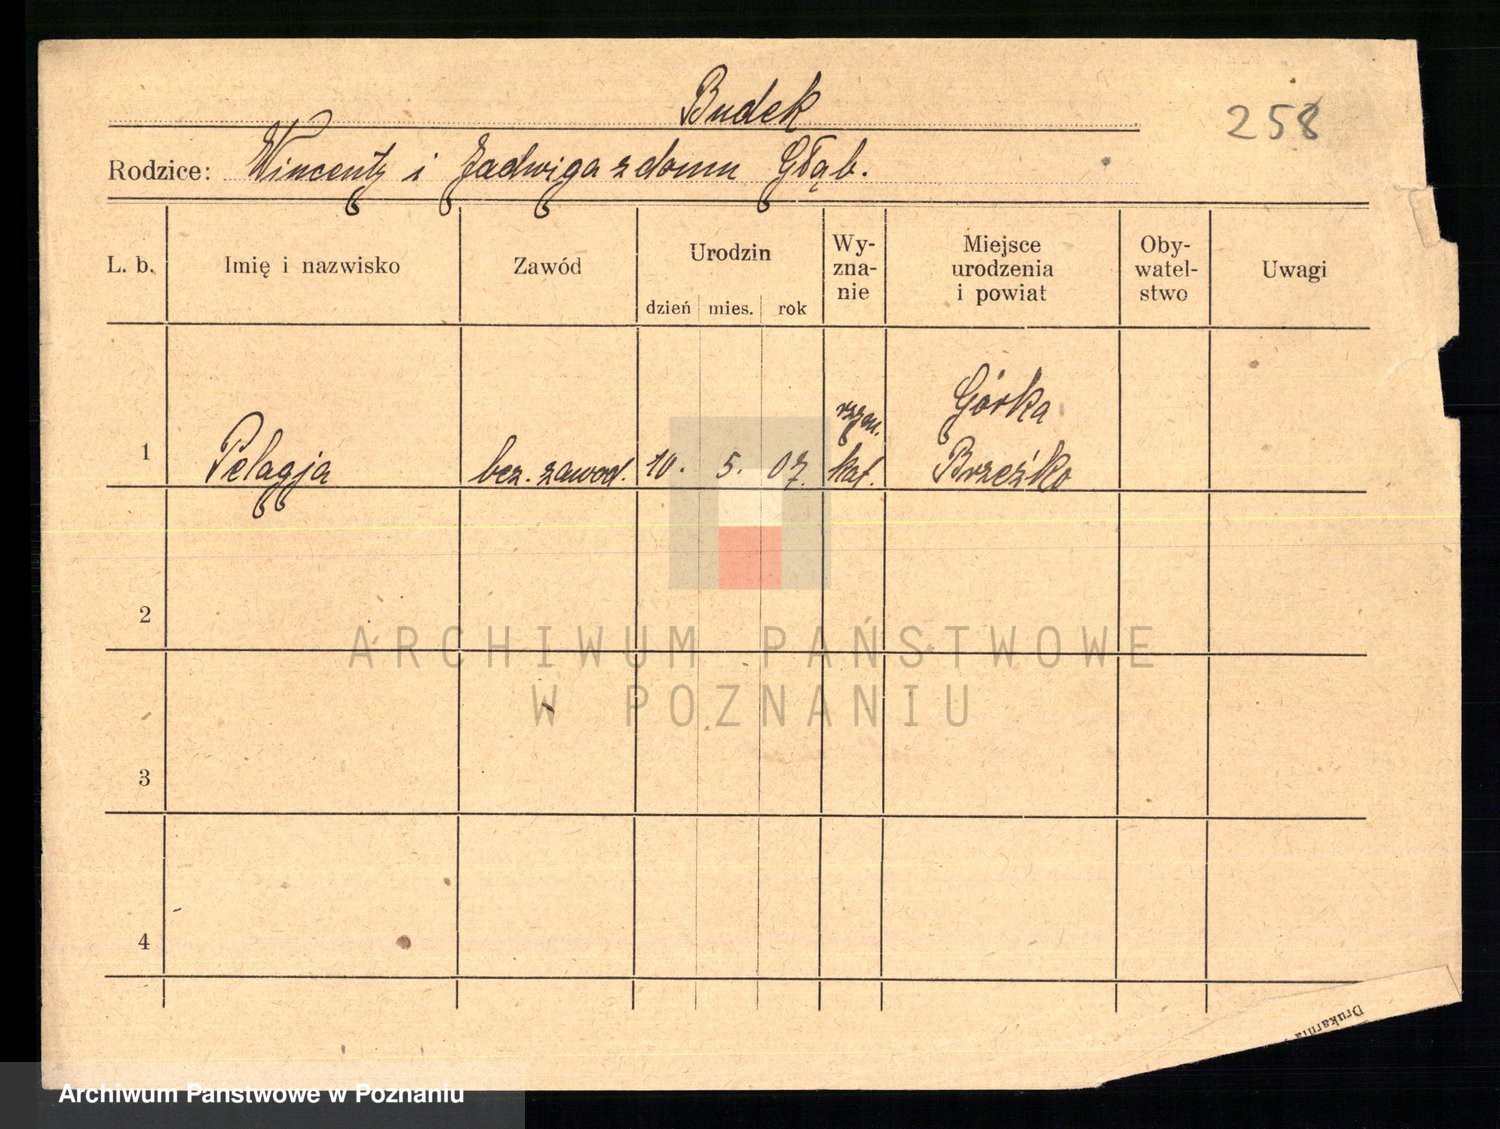 Budek
258
Rodzice: Wincenty i Jadwiga z domu Głąb.
L. b. Imię i nazwisko Zawód Urodzin Wy-zna-nie Miejsce urodzenia i powiat Oby-watel-stwo Uwagi
dzień mies. rok
Górka
rzym.
1 Pelagja bez. zawod. 10. 5. 07. kat. Brzeźko
2
ARCHIWUM PAŃSTWOWE
W POZNANIU
3
4
Drukarnia
Archiwum Państwowe w Poznaniu